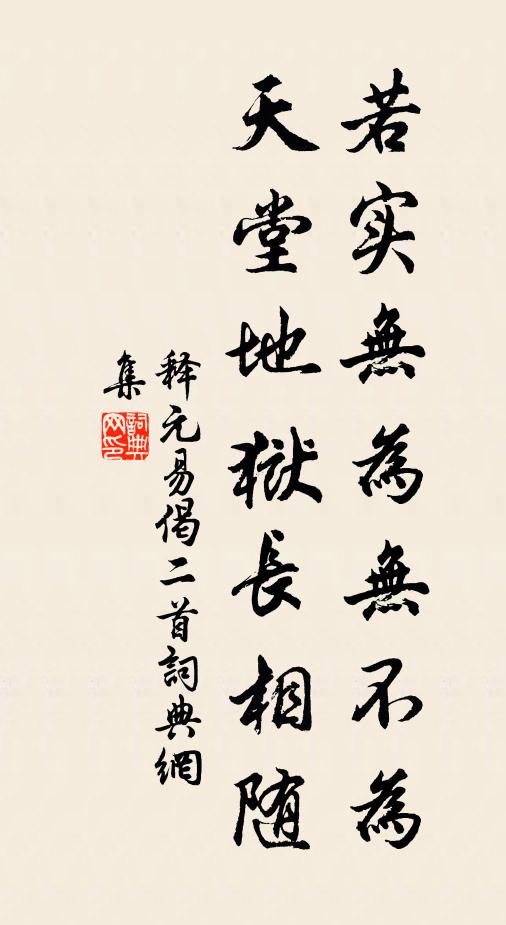 若实無為無不為
天堂地獄長相随
释元易偈二首詞典網
集
詞典网印